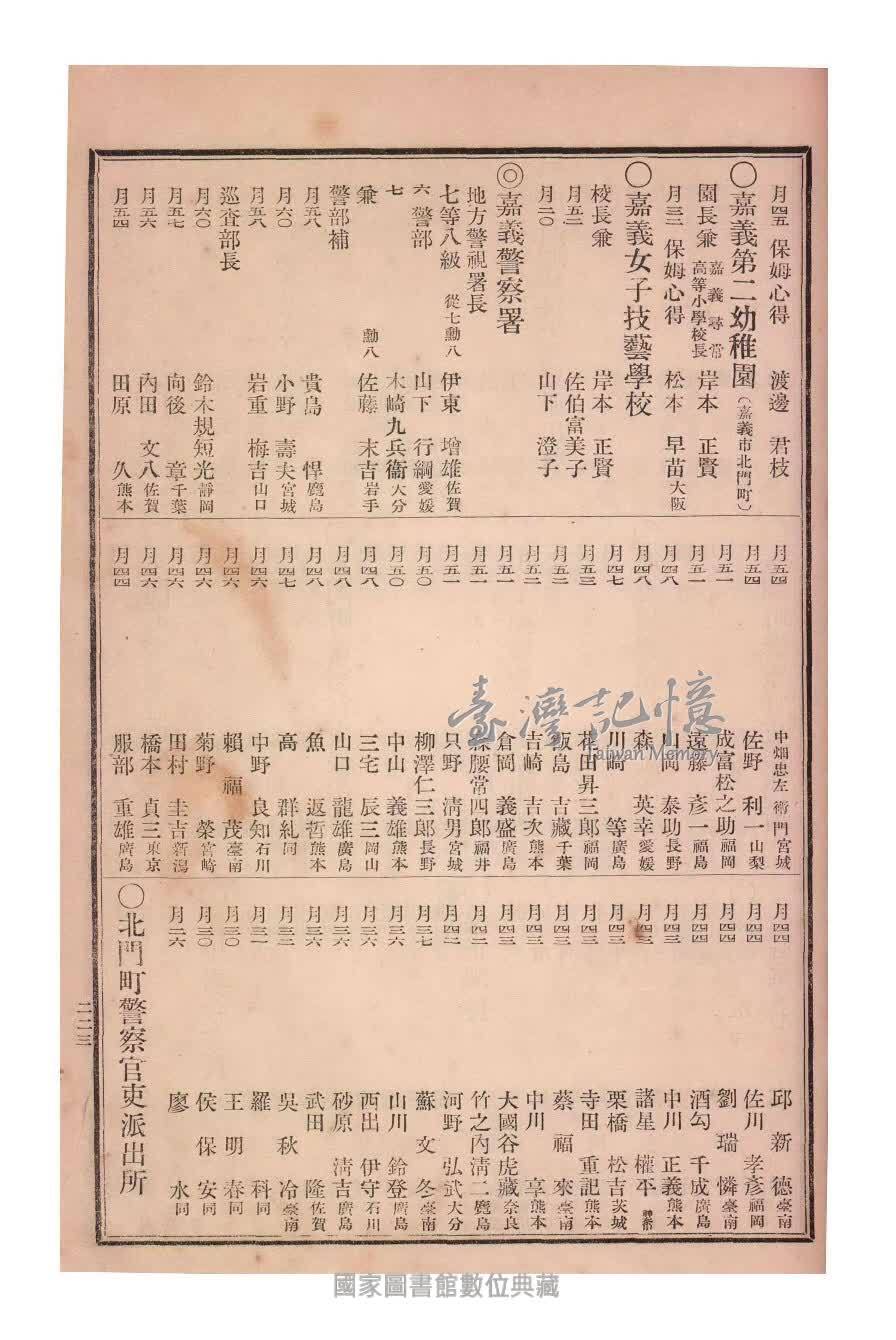 月四五 保姆心得 渡邊 君枝
〇嘉義第二幼稚園(嘉義市北門町)
園長兼 嘉義尋常高等小學校長 岸本 正賢
月三二 保姆心得 松本 早苗 大阪
〇嘉義女子技藝學校
校長兼 岸本 正賢
月五三 佐伯富美子
月二〇 山下 澄子
◎嘉義警察署
地方警視署長
七等八級 從七勳八 伊東 增雄 佐賀
六 警部 山下 行綱 愛媛
七 木崎九兵衞 大分
兼 勳八 佐藤 末吉 岩手
警部補
月五八 貴島 悍 鹿島
月六〇 小野 壽夫 宮城
月五八 岩重 梅吉 山口
巡查部長
月六〇 鈴木規短光 靜岡
月五七 向後 章 千葉
月五六 內田 文八 佐賀
月五四 田原 久 熊本
月五四 中畑忠左衞門 宮城
月五四 佐野 利一 山梨
月五一 成富松之助 福岡
月五一 遠藤 彥一 福島
月四八 山岡 泰助 長野
月四八 森 英幸 愛媛
月四七 川崎 等 廣島
月五三 花田昇三郎 福岡
月五二 飯島 吉藏 千葉
月五二 吉崎 吉次 熊本
月五一 倉岡 義盛 廣島
月五一 腰常四郎 福井
月五一 只野 淸男 宮城
月五〇 柳澤仁三郎 長野
月五〇 中山 義雄 熊本
月四八 三宅 辰三 岡山
月四八 山口 龍雄 廣島
月四八 魚 返哲 熊本
月四七 高 群糺 同
月四六 中野 良知 石川
月四六 賴 福 茂 臺南
月四六 菊野 榮 宮崎
月四六 田村 圭吉 新潟
月四六 橋本 貞三 東京
月四四 服部 重雄 廣島
月四四 邱 新 德 臺南
月四四 佐川 孝彥 福岡
月四四 劉 瑞 憐 臺南
月四四 酒勾 千成 廣島
月四三 中川 正義 熊本
月四三 諸星 權平 神奈
月四三 栗橋 松吉 茨城
月四三 寺田 重記 熊本
月四三 蔡 福 來 臺南
月四三 中川 享 熊本
月四三 大國谷虎藏 奈良
月四二 竹之內淸二 鹿島
月四二 河野 弘武 大分
月三七 蘇 文 冬 臺南
月三六 山川 鈴登 廣島
月三六 西出 伊守 石川
月三六 砂原 淸吉 廣島
月三六 武田 隆 佐賀
月三二 吳 秋 冷 臺南
月三一 羅 科 同
月三〇 王 明 春 同
月三〇 侯 保 安 同
月二六 廖 水 同
〇北門町警察官吏派出所
二二三
臺灣記憶
Taiwan Memory
國家圖書館數位典藏